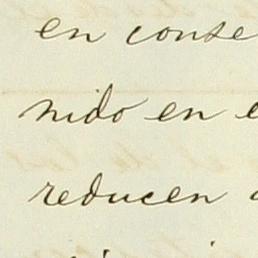 en conse
nido en e
reducen